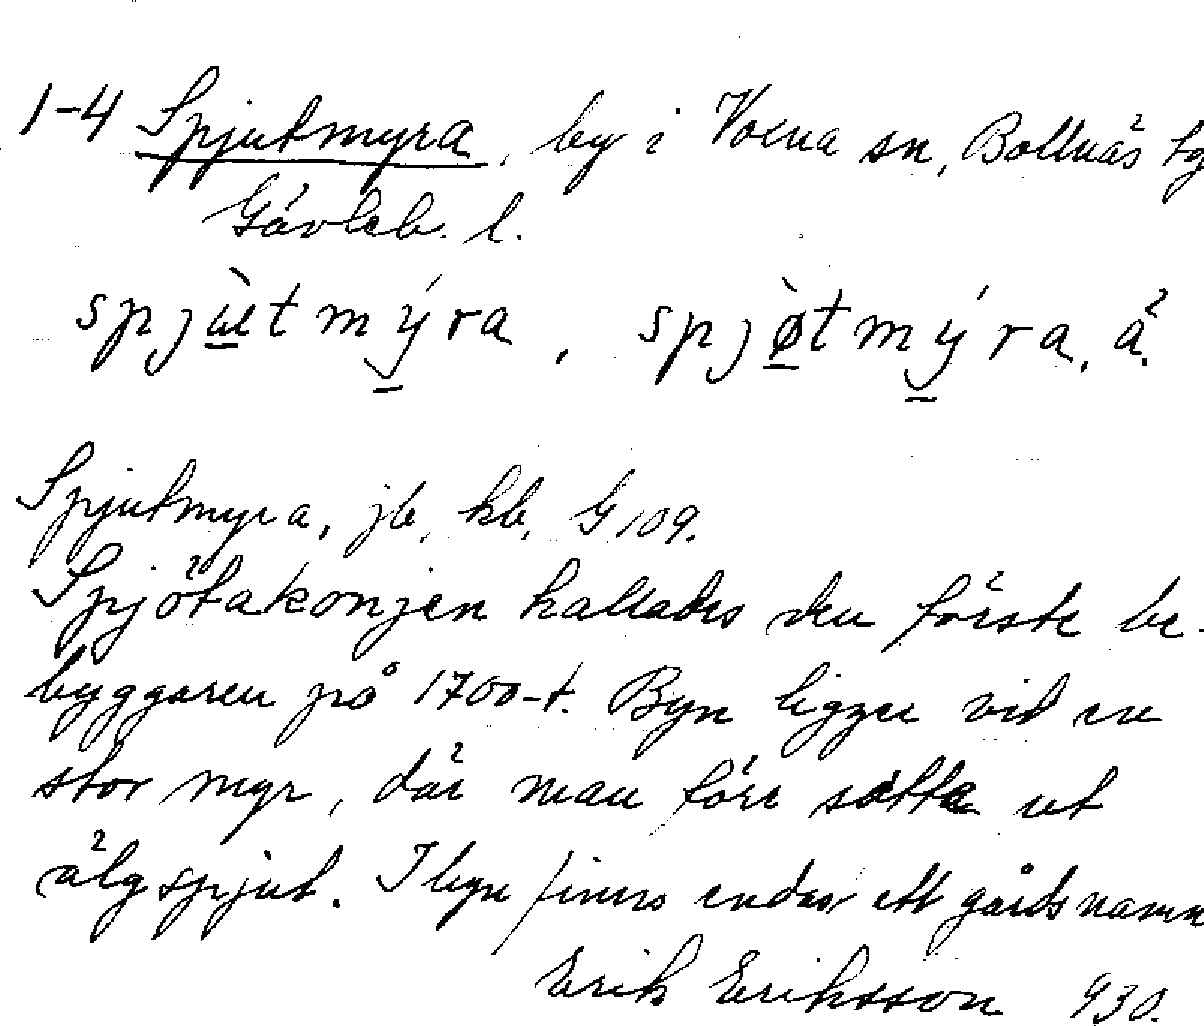 1-4 Spjutmyra, by i Voxna sn, Bollnäs tg
Gävleb. l.
spjùtmýra, spjøtmýra, ä.
Spjutmyra, jb, kb, G 109.
Spjötakonjen kallades den förste be-
byggaren på 1700-t. Byn ligger vid en
stor myr, där man förr satte ut
älgspjut. I byn finns endast ett gårdsnamn
Erik Eriksson 930.